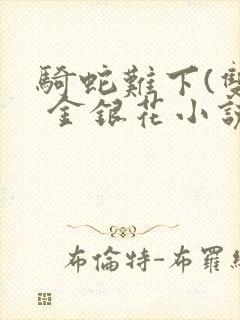 騎蛇難下(雙
金銀花小説
布倫特-布羅